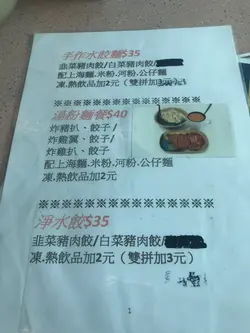 手作水餃麵$35
韭菜豬肉餃/白菜豬肉餃/
配上海麵.米粉.河粉.公仔麵
凍.熱飲品加2元（雙拼加3元）
※※※※※※※※※※※※※※※※
湯粉麵餐$40
炸豬扒、餃子/
炸雞翼、餃子/
炸雞扒、餃子
配上海麵.米粉.河粉.公仔麵
凍.熱飲品加2元
※※※※※※※※※※※※※※※※
淨水餃$35
韭菜豬肉餃/白菜豬肉餃/
凍.熱飲品加2元（雙拼加3元）
1